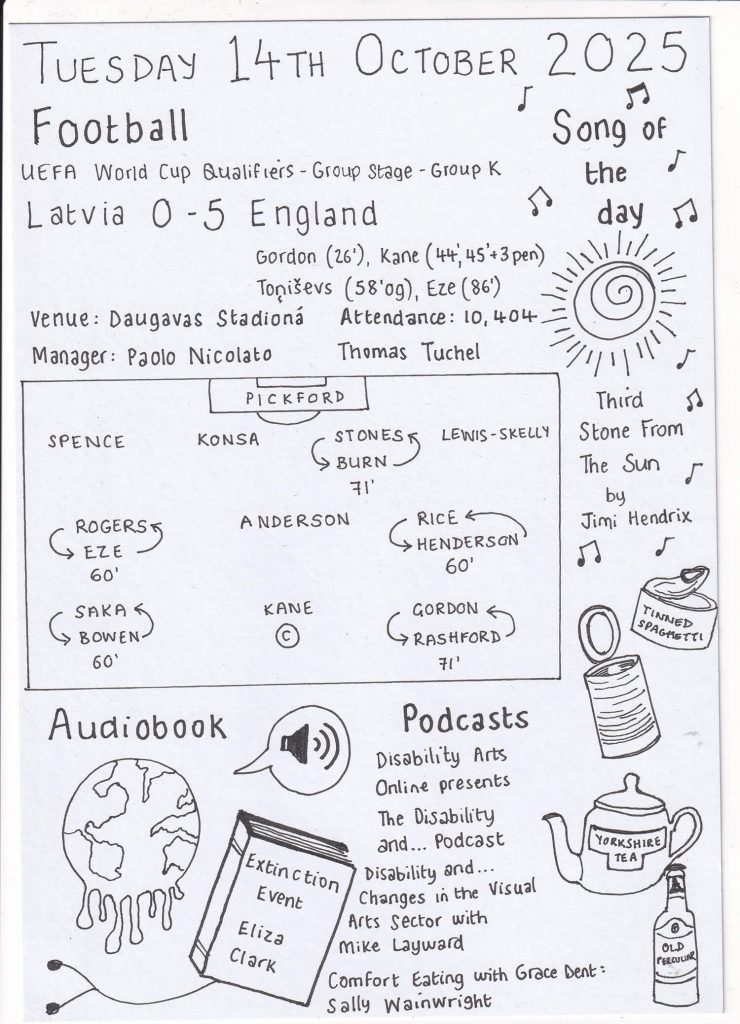 TUESDAY 14TH OCTOBER 2025
Football
UEFA World Cup Qualifiers - Group Stage - Group K
Latvia 0 - 5 England
Gordon (26'), Kane (44', 45'+3 pen)
Toņiševs (58'og), Eze (86')
Venue: Daugavas Stadioná Attendance: 10,404
Manager: Paolo Nicolato Thomas Tuchel
PICKFORD
SPENCE KONSA STONES LEWIS-SKELLY
BURN
71'
ROGERS ANDERSON RICE
EZE HENDERSON
60' 60'
SAKA KANE GORDON
BOWEN C RASHFORD
60' 71'
Song of
the
day
Third
Stone From
The Sun
by
Jimi Hendrix
TINNED
SPAGHETTI
Audiobook
Extinction
Event
Eliza
Clark
Podcasts
Disability Arts
Online presents
The Disability
and... Podcast
Disability and...
Changes in the Visual
Arts Sector with
Mike Layward
Comfort Eating with Grace Dent:
Sally Wainwright
YORKSHIRE
TEA
OLD
PERCULIAR